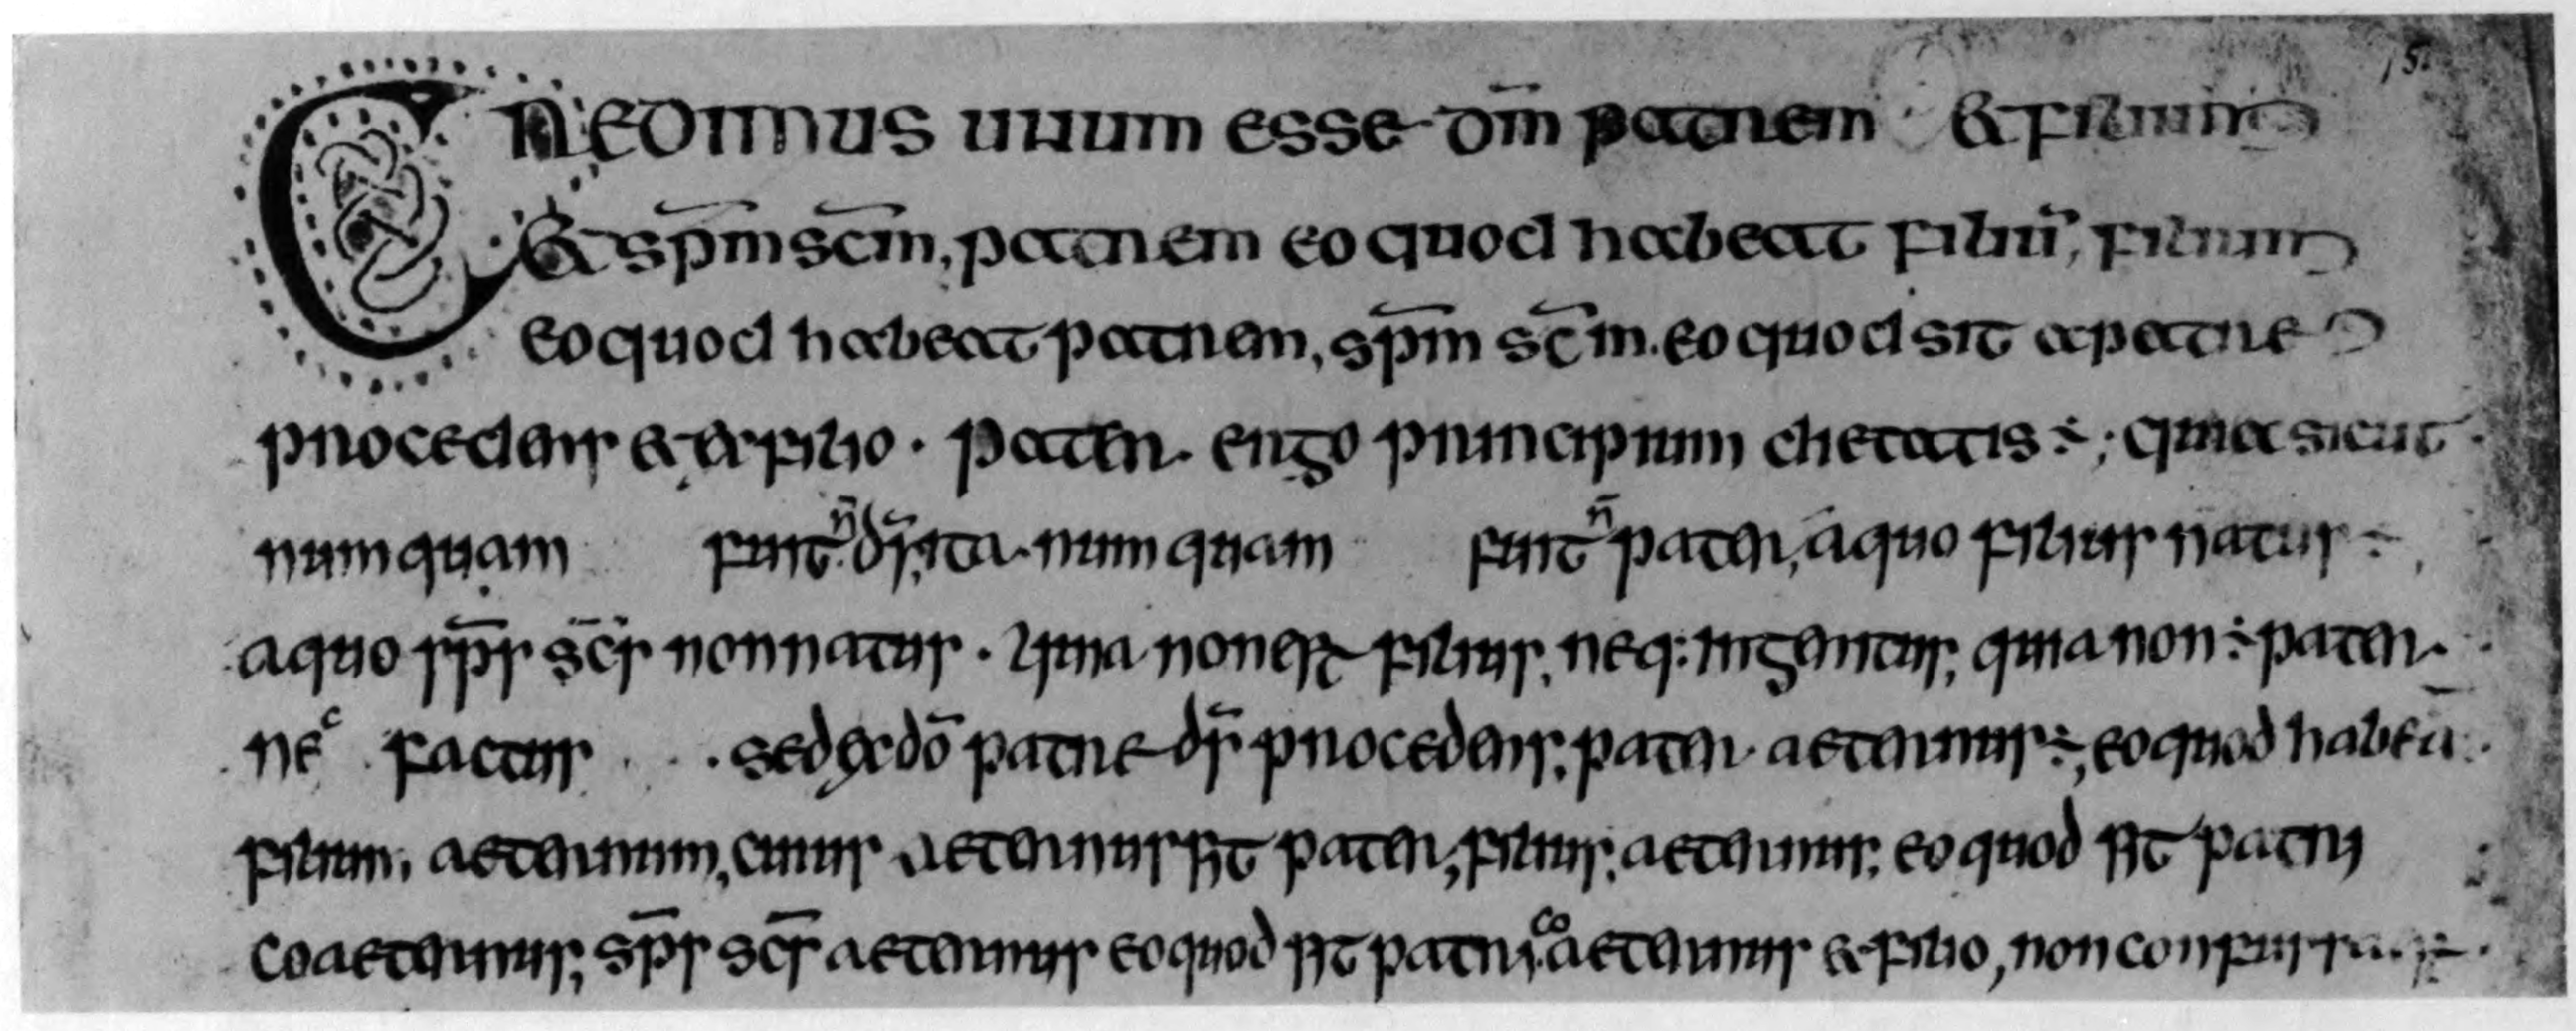 15
CREDIMUS UNUM ESSE dm̄ patrem & filium
& spm̄ scm̄, patrem eo quod habeat filiū, filium
eo quod habeat patrem, spm̄ scm̄. eo quod sit a patre
procedens & a filio. pater. ergo principium dietatis ÷; quia sicut
numquam fuit n̄ ds̄, ita numquam fuit n̄ pater, a quo filius natus ÷,
a quo sps̄ scs̄ non natus. quia non est filius, neq: ingenitus, quia non ÷ pater.
nec factus . sed ex dō patre ds̄ procedens, pater aeternus ÷, eo quod habeā
filium, aeternum, cuius aeternus sit pater, filius, aeternus, eo quod sit patri
coaeternus, sps̄ scs̄ aeternus eo quod sit patri coaeternus & filio, non